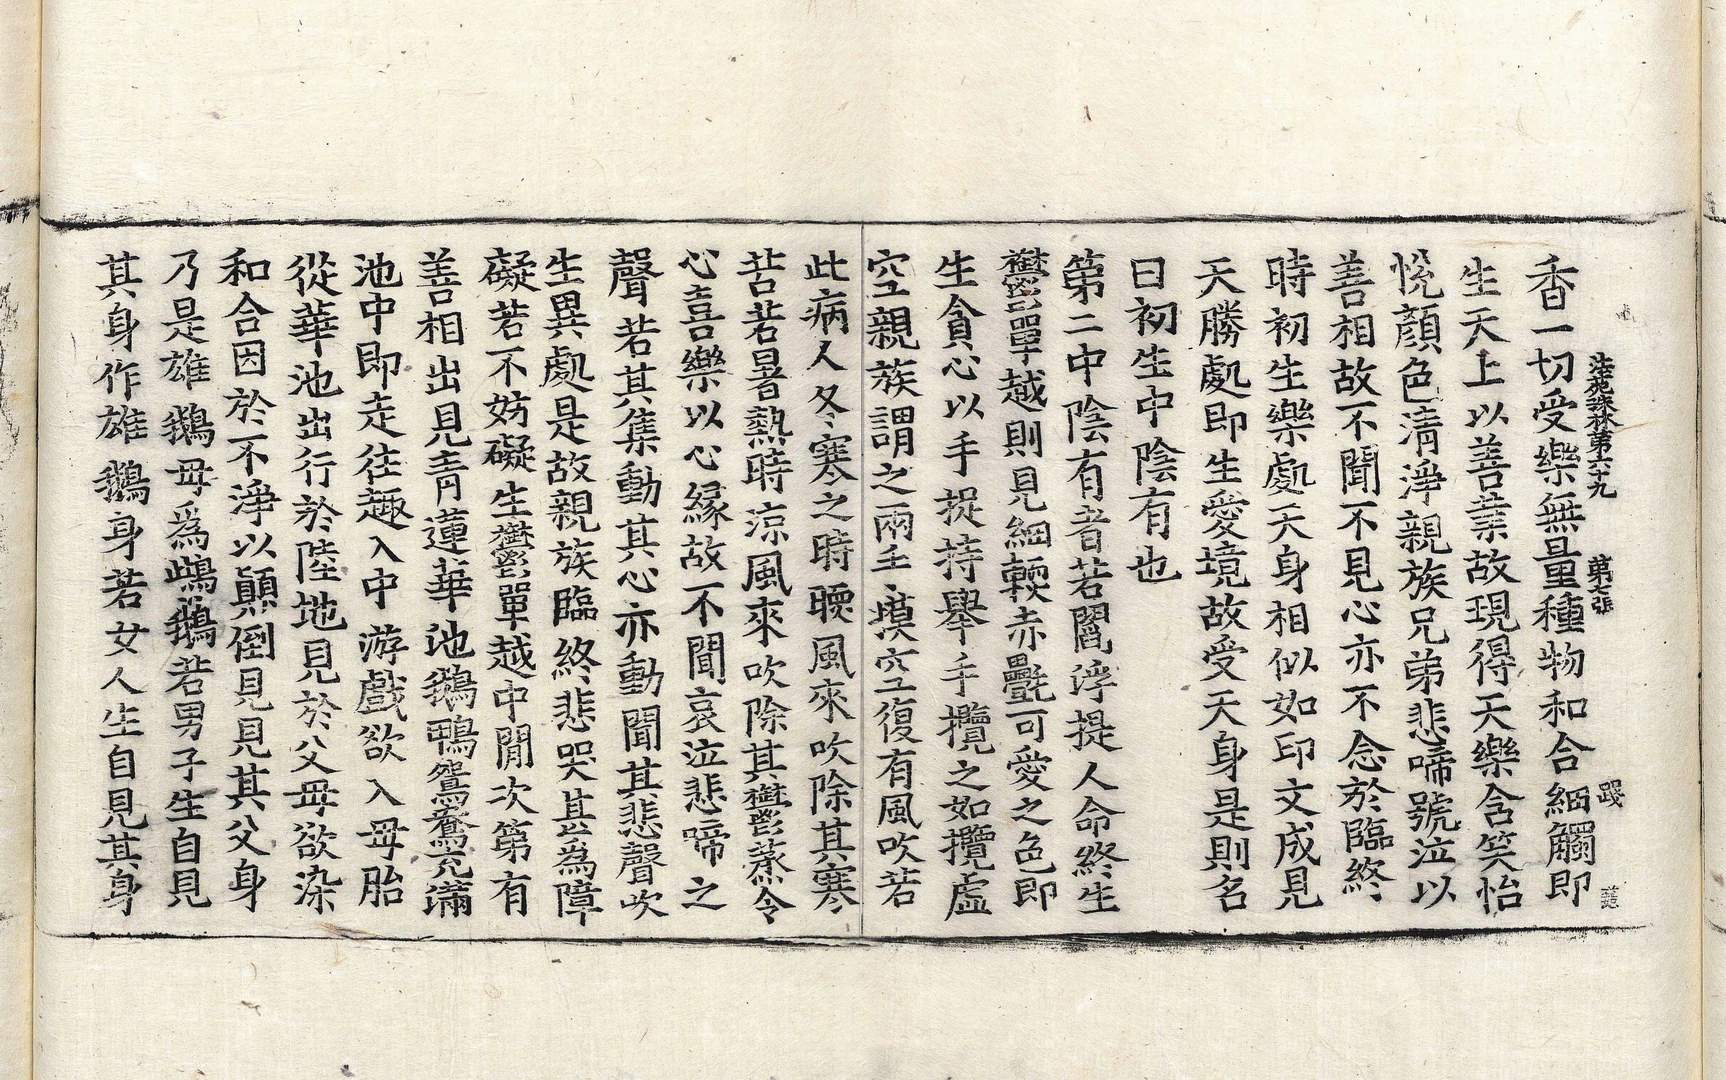 法苑珠林第六十九　第七張　踐
香一切受樂無量種物和合細觸即
生天上以善業故現得天樂含笑怡
悅顔色清淨親族兄弟悲啼號泣以
善相故不聞不見心亦不念於臨終
時初生樂處天身相似如印文成見
天勝處即生愛境故受天身是則名
曰初生中陰有也
第二中陰有者若閻浮提人命終生
欝單越則見細軟赤㲲可愛之色即
生貪心以手捉持舉手攬之如攬虛
空親族謂之兩手摸空復有風吹若
此病人冬寒之時暖風來吹除其寒
苦若暑熱時涼風來吹除其欝蒸令
心喜樂以心緣故不聞哀泣悲啼之
聲若其集動其心亦動聞其悲聲吹
生異處是故親族臨終悲哭甚為障
礙若不妨礙生欝單越中間次第有
善相出見青蓮華池鵝鴨鴛鴦充滿
池中即走往趣入中游戲欲入母胎
從華池出行於陸地見於父母欲染
和合因於不淨以顛倒見見其父身
乃是雄鵝母為雌鵝若男子生自見
其身作雄鵝身若女人生自見其身